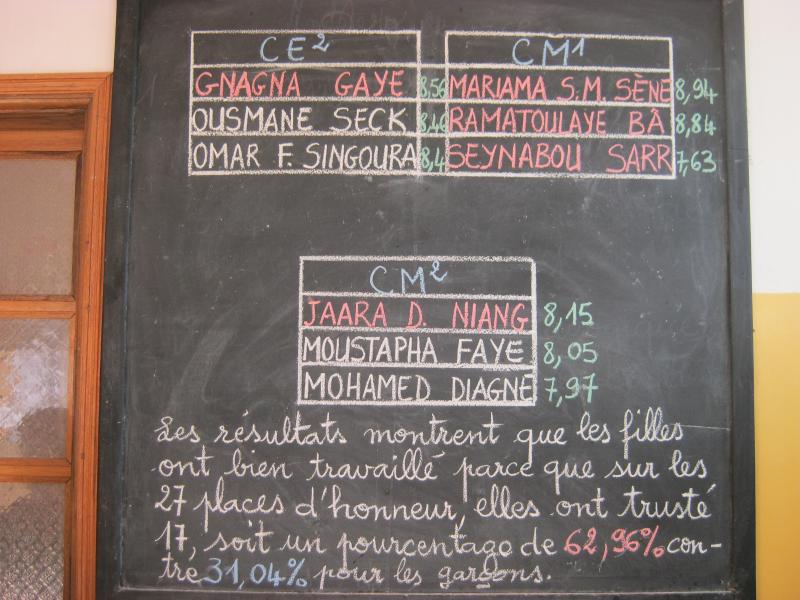 CE2
GNAGNA GAYE 8,56
OUSMANE SECK 8,46
OMAR F. SINGOURA 8,4
CM1
MARIAMA S.M. SÈNE 8,94
RAMATOULAYE BÂ 8,84
SEYNABOU SARR 7,63
CM2
JAARA D. NIANG 8,15
MOUSTAPHA FAYE 8,05
MOHAMED DIAGNE 7,97
Les résultats montrent que les filles
ont bien travaillé parce que sur les
27 places d'honneur, elles ont trusté
17, soit un pourcentage de 62,96% con-
tre 31,04% pour les garçons.